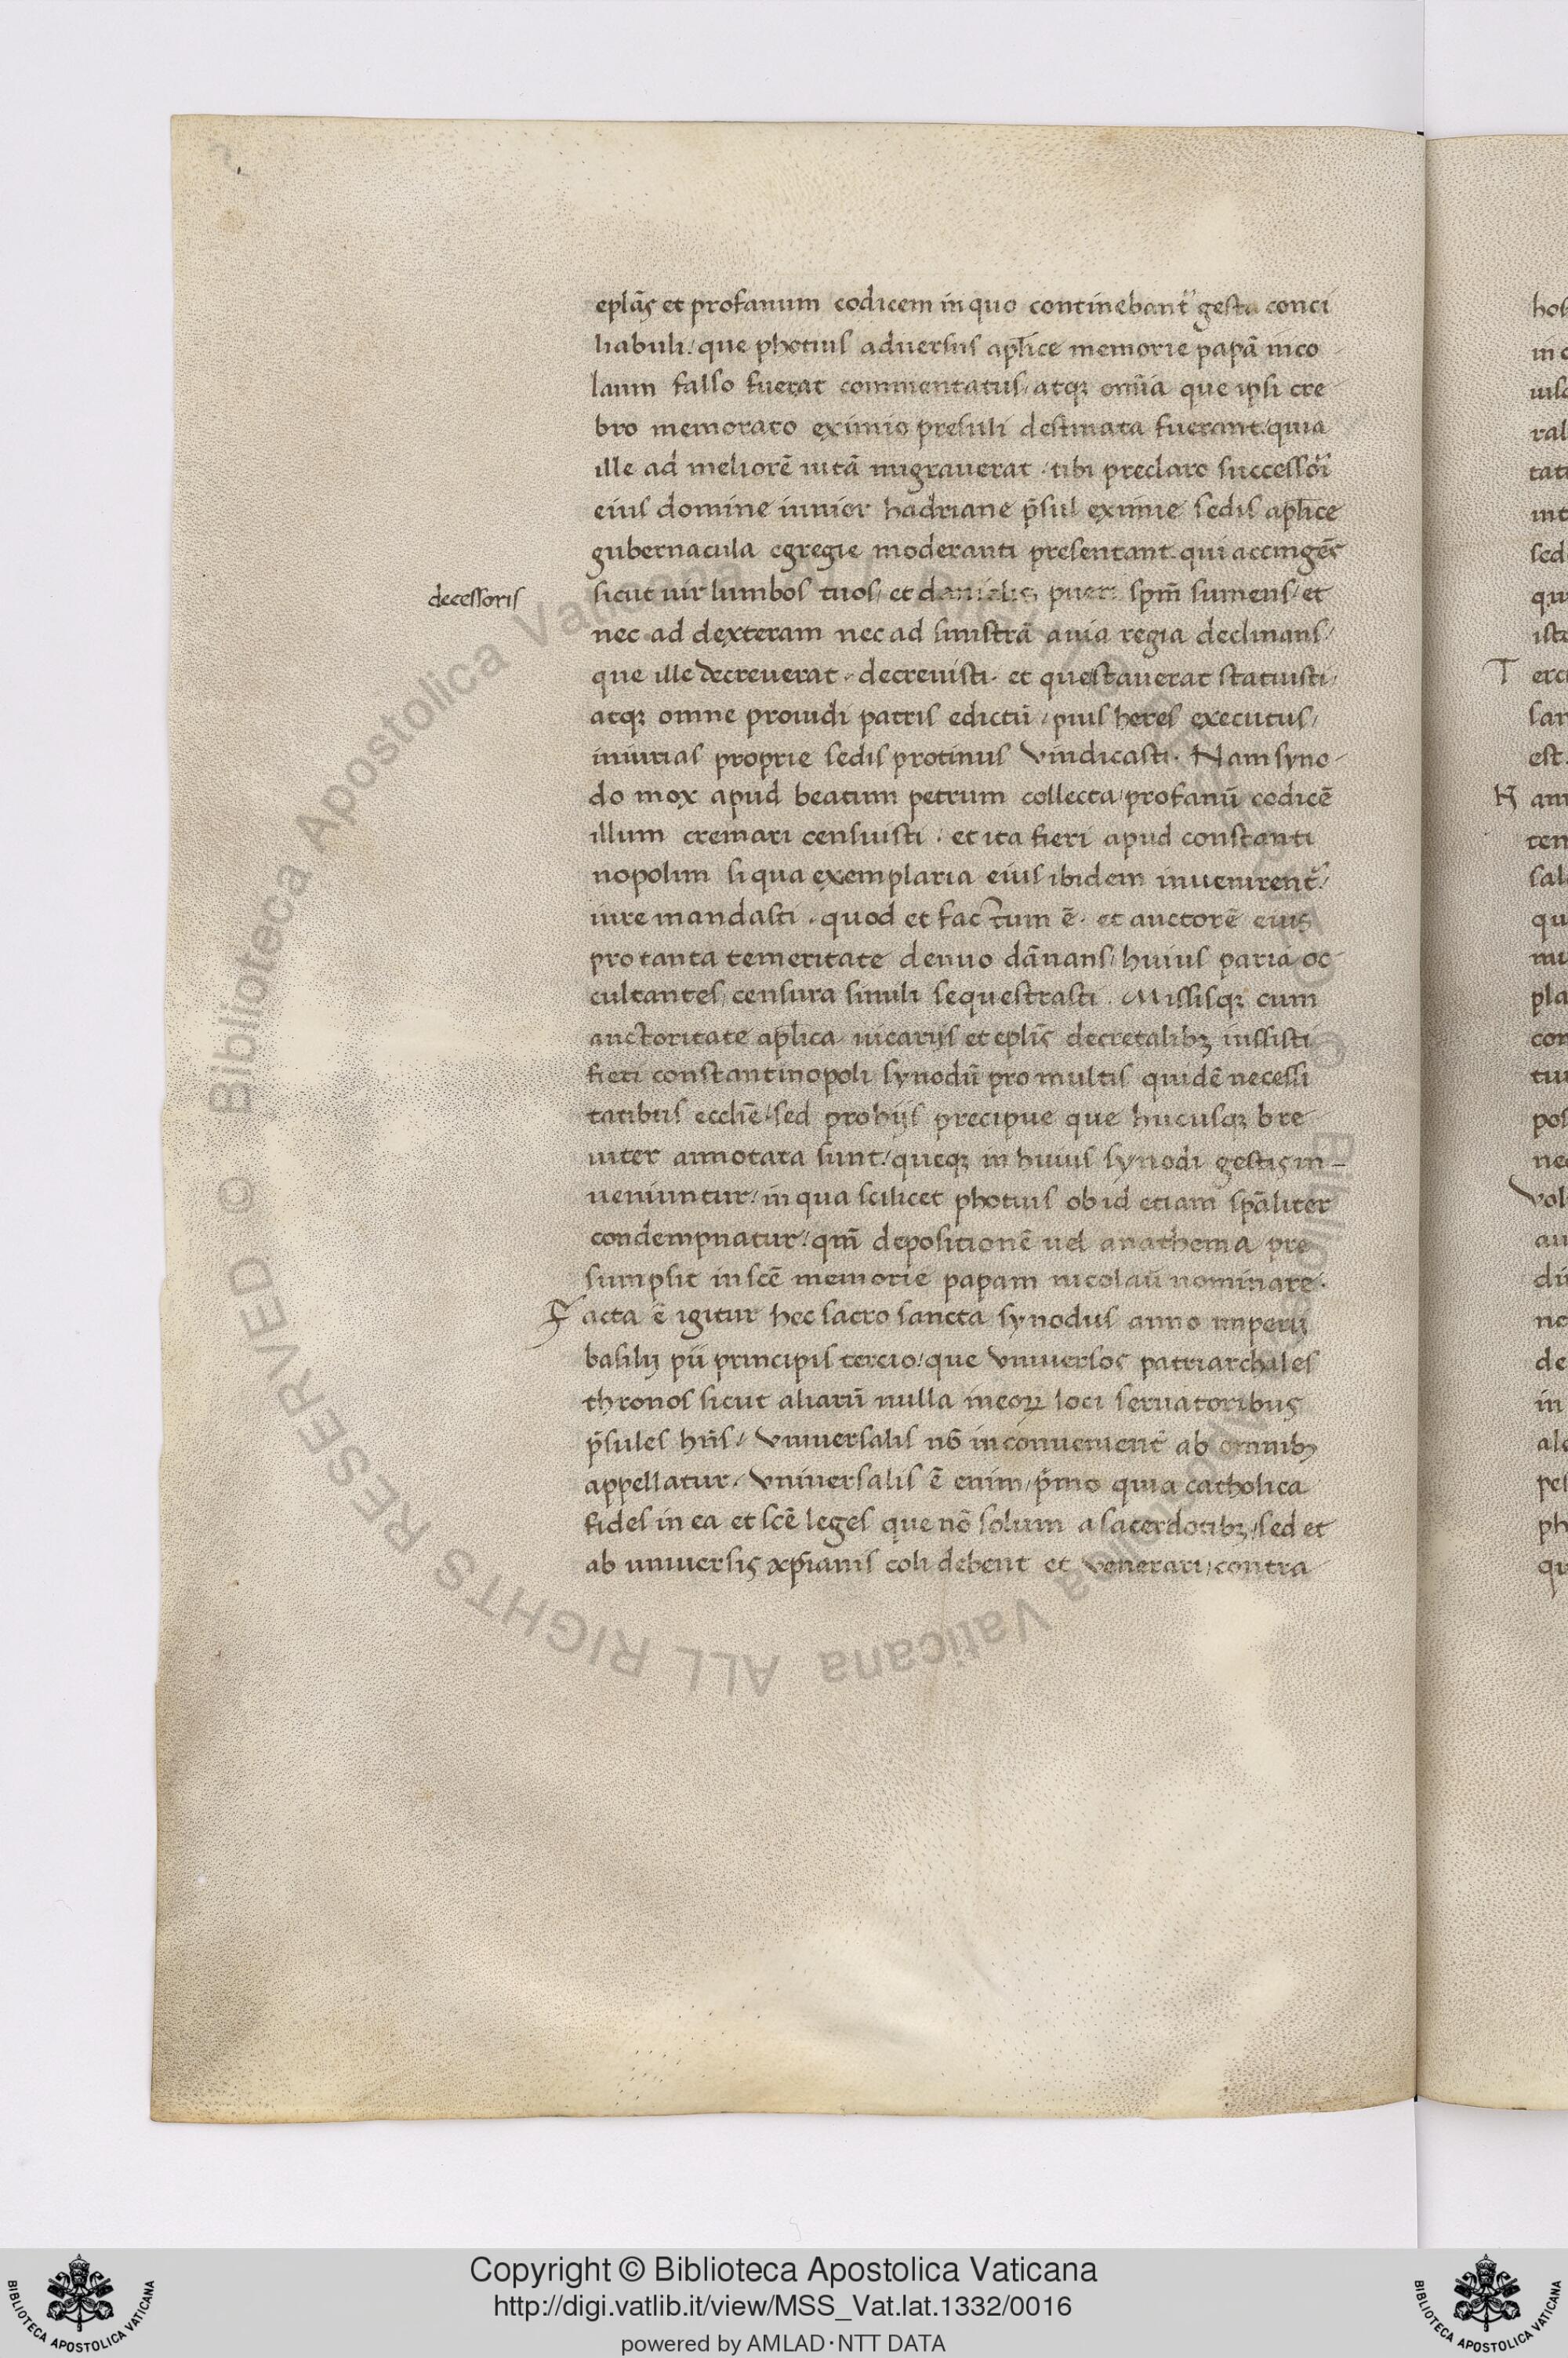 eplās et profanum codicem in quo continebant᷑ gesta conci
liabuli / que photius adversus aplice memorie papā nico
laum falso fuerat commentatus / atqꝫ om̄ia que ipsi cre
bro memorato eximio presuli destinata fuerant / quia
ille ad meliorē uitā migrauerat · tibi preclaro successori
eius domine iunior hadriane p̄sul eximie sedis aplice
gubernacula egregie moderanti presentant. qui accingēs
decessoris
sicut uir lumbos tuos / et danielis pueri spm̄ sumens / et
nec ad dexteram nec ad sinistrā a uia regia declinans /
que ille decreuerat · decreuisti · et que stauerat statuisti /
atqꝫ omne prouidi patris edictū / pius heres executus /
iniurias proprie sedis protinus vindicasti · Nam syno-
do mox apud beatum petrum collecta / profanū codicē
illum cremari censuisti · et ita fieri apud constanti
nopolim si qua exemplaria eius ibidem inuenirent᷑ /
iure mandasti · quod et factum ē · et auctorē eius
pro tanta temeritate denuo dānans / huius paria oc-
cultantes / censura simili sequestrasti . Missisqꝫ cum
auctoritate aplica uicarijs et eplīs decretalibꝫ iussisti
fieri constantinopoli synodū pro multis quidē necessi
tatibus ecclīe / sed pro hijs precipue que hucusqꝫ bre
uiter annotata sunt / queqꝫ in huius synodi gestis in-
ueniuntur / in qua scilicet photius ob id etiam spāliter
condempnatur / qm̄ depositionē uel anathema pre
sumpsit in scē memorie papam nicolaū nominare ·
Facta ē igitur hec sacrosancta synodus anno imperij
basilij pij principis tercio / que vniuersos patriarchales
thronos sicut aliarū nulla in eoꝝ loci seruatoribus
p̄sules hn̄s / vniuersalis nō inconuenient᷑ ab omnibꝫ
appellatur · vniuersalis ē enim / p̄mo quia catholica
fides in ea et scē leges que nō solum a sacerdotibꝫ / sed et
ab uniuersis xp̄ianis coli debent et venerari / contra
hos
in c
uisc
ral
tati
int
sed
qui
iste
Terci
sar
est.
Nam
tem
sal
qu
mi
pla
con
tui
pos
nec
vol
au
dii
no
de
in
ale
pet
ph
qu
© Biblioteca Apostolica Vaticana ALL RIGHTS RESERVED
Copyright © Biblioteca Apostolica Vaticana
http://digi.vatlib.it/view/MSS_Vat.lat.1332/0016
powered by AMLAD·NTT DATA
BIBLIOTECA APOSTOLICA VATICANA
BIBLIOTECA APOSTOLICA VATICANA